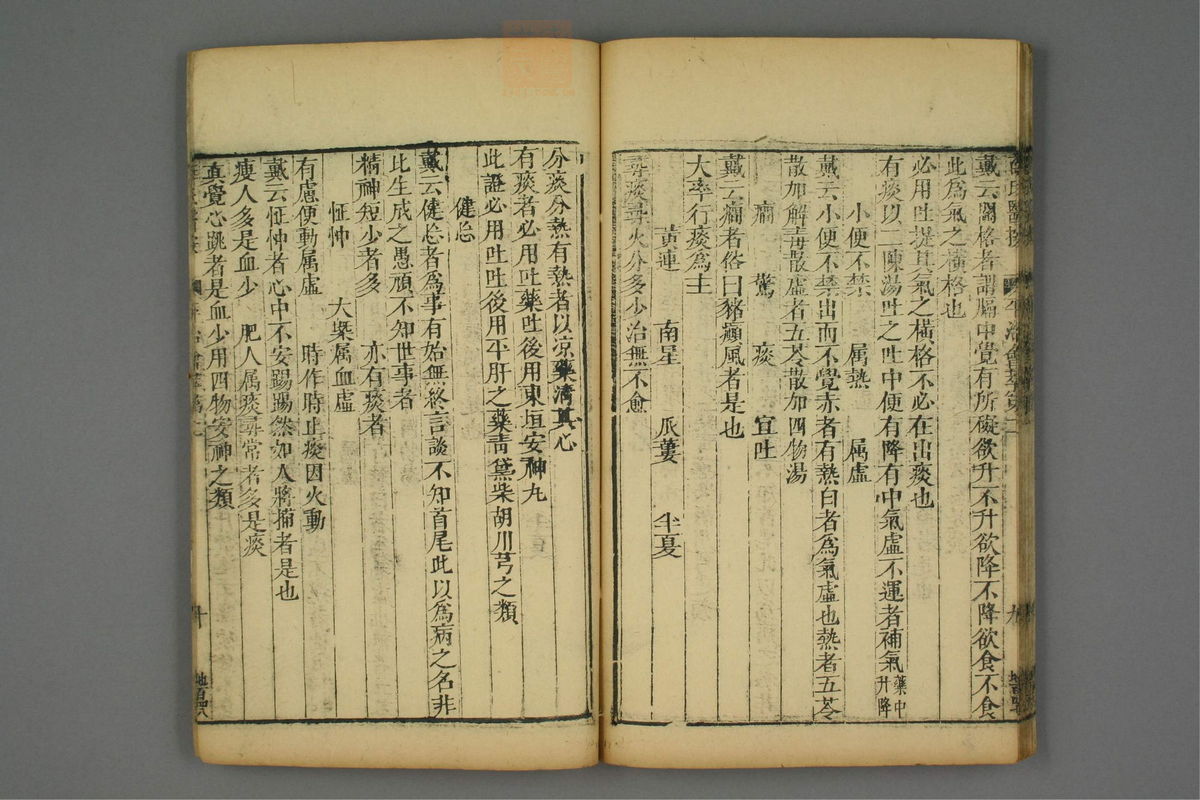 戴云關格者謂膈中覺有所礙欲升不升欲降不降欲食不食
此爲氣之橫格也
必用吐提其氣之橫格不必在出痰也
有痰以二陳湯吐之吐中便有降有中氣虛不運者補氣藥中升降
小便不禁 属熱 属虛
戴云小便不禁出而不覺赤者有熱白者爲氣虛也熱者五苓
散加解毒散虛者五苓散加四物湯
癎 驚 痰 宜吐
戴云癎者俗曰豬癲風者是也
大率行痰爲主
黃連 南星 瓜蔞 半夏
尋痰尋火分多少治無不愈
分痰分熱有熱者以凉藥清其心
有痰者必用吐藥吐後用東垣安神丸
此證必用吐吐後用平肝之藥靑黛柴胡川芎之類
健忘
戴云健忘者爲事有始無終言談不知首尾此以爲病之名非
比生成之愚頑不知世事者
精神短少者多 亦有痰者
怔忡 大槩属血虛
有慮便動属虛 時作時止痰因火動
戴云怔忡者心中不安惕惕然如人將捕者是也
瘦人多是血少 肥人属痰尋常者多是痰
真覺心跳者是血少用四物安神之類